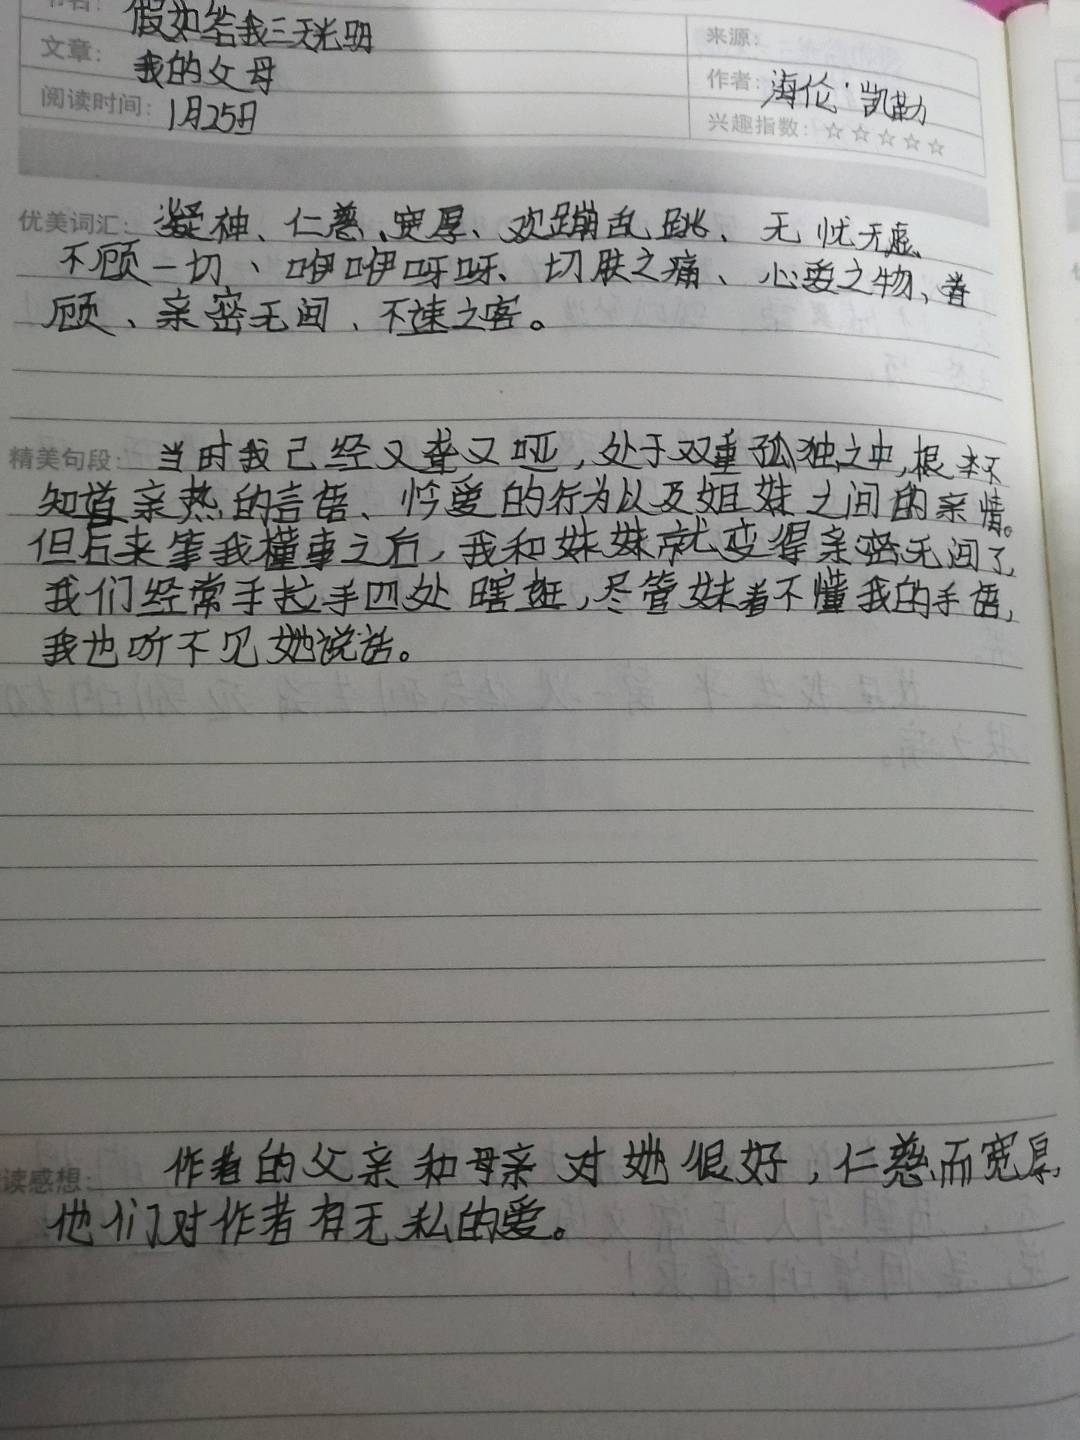 书名： 假如给我三天光明
来源：
文章： 我的父母
作者： 海伦·凯勒
阅读时间： 1月25日
兴趣指数：☆☆☆☆☆
优美词汇： 凝神、仁慈、宽厚、欢蹦乱跳、无忧无虑、
不顾一切、咿咿呀呀、切肤之痛、心爱之物、眷
顾、亲密无间、不速之客。
精美句段： 当时我已经又聋又哑，处于双重孤独之中，根本不
知道亲热的言语、怜爱的行为以及姐妹之间的亲情。
但后来等我懂事之后，我和妹妹就变得亲密无间了，
我们经常手拉手四处瞎逛，尽管妹看不懂我的手语，
我也听不见她说话。
读感想： 作者的父亲和母亲对她很好，仁慈而宽厚，
他们对作者有无私的爱。